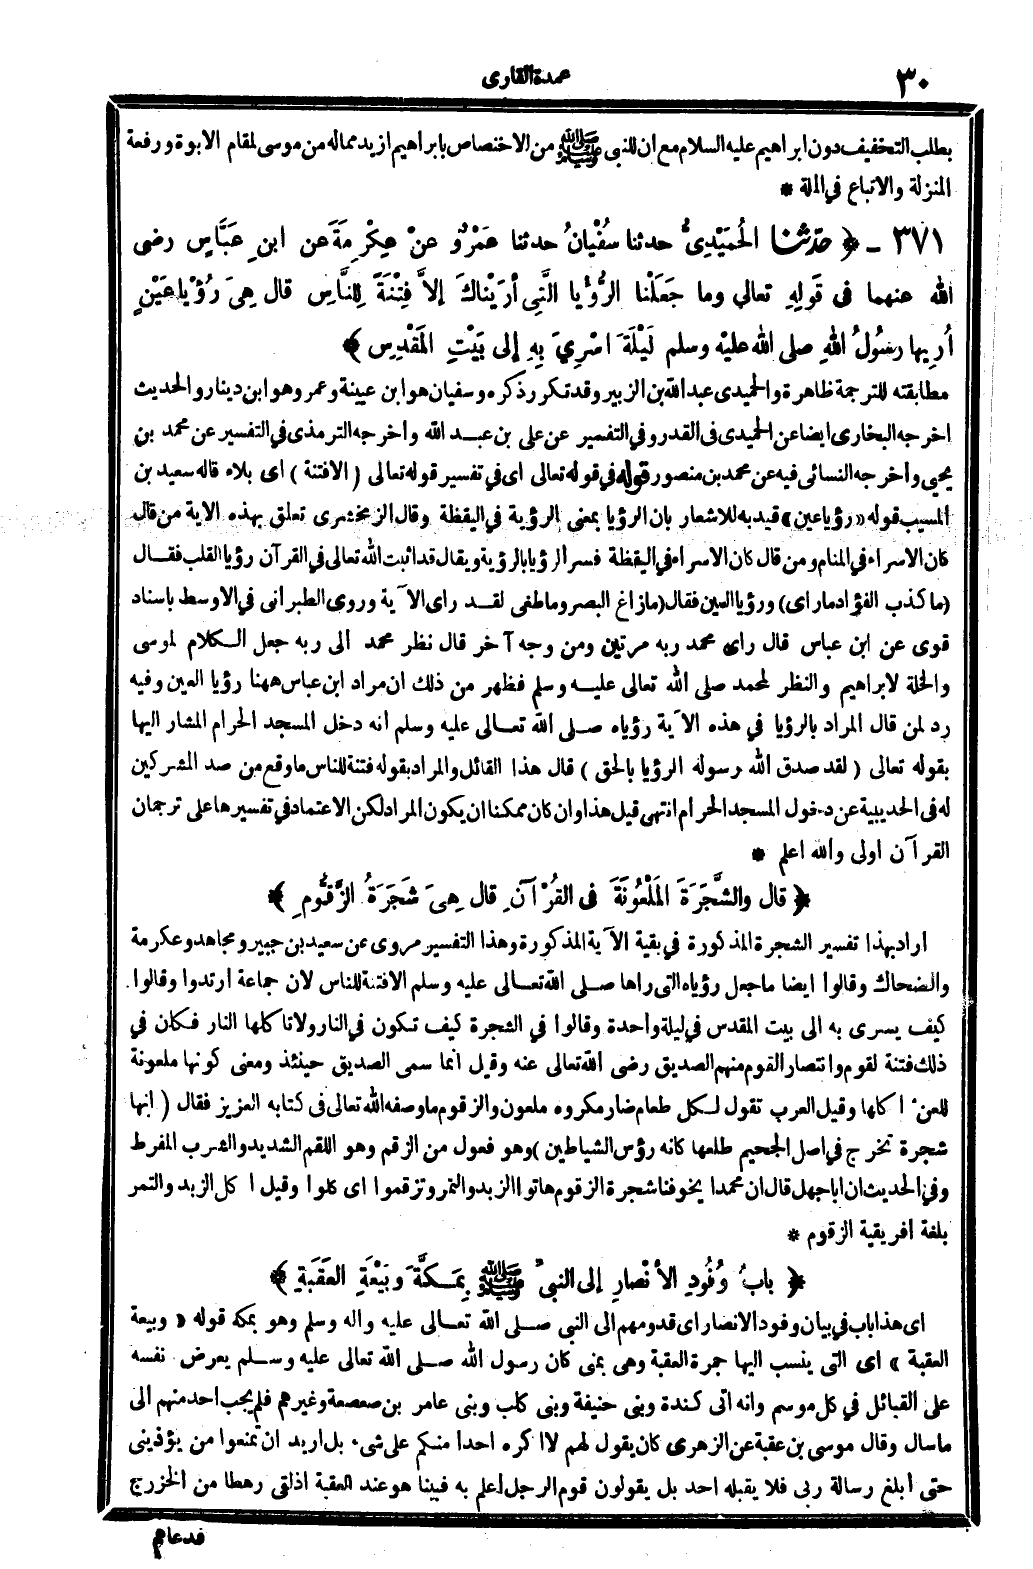 ٣٠
عمدة القارى
بطلب التخفيف دون ابراهيم عليه السلام مع ان للنبى ﷺ من الاختصاص بابراهيم ازيد مما له من موسى لمقام الابوة ورفعة
المنزلة والاتباع في الملة *
٣٧١ - ﴿ حَدَّثَنَا الحُمَيْدِىُّ حدثنا سُفْيانُ حدثنا عَمْرٌو عنْ عِكْرِمَةَ عن ابنِ عَبَّاسٍ رضى
الله عنهما فى قَولِهِ تعالي وما جَعَلْنا الرُّؤْيا الَّتِى أرَيْناكَ إلاَّ فِتْنَةً لِلنَّاسِ قال هِىَ رُؤْيا عَيْنٍ
أُرِيها رسُولُ اللهِ صلى الله عليْه وسلم لَيْلَةَ اسْرِيَ بِهِ إلى بَيْتِ المَقْدِسِ ﴾
مطابقته للترجمة ظاهرة والحميدى عبد الله بن الزبير وقد تكرر ذكره وسفيان هو ابن عيينة وعمرو هو ابن دينار والحديث
اخرجه البخارى ايضا عن الحميدى فى القدر وفي التفسير عن على بن عبد الله واخرجه الترمذى في التفسير عن محمد بن
يحيى وأخرجه النسائى فيه عن محمد بن منصور قوله في قوله تعالى اى في تفسير قوله تعالى ( الا فتنة ) اى بلاء قاله سعيد بن
المسيب قوله «رؤيا عين» قيد به للاشعار بان الرؤيا بمعنى الرؤية في اليقظة وقال الزمخشرى تعلق بهذه الاية من قال
كان الاسراء في المنام ومن قال كان الاسراء في اليقظة فسر الرؤيا بالرؤية ويقال قد اثبت الله تعالى في القرآن رؤيا القلب فقال
(ما كذب الفؤاد ما راى) ورؤيا العين فقال (ما زاغ البصر وما طغى لقد راى الآية وروى الطبرانى في الاوسط باسناد
قوى عن ابن عباس قال راى محمد ربه مرتين ومن وجه آخر قال نظر محمد الى ربه جعل الكلام لموسى
والخلة لابراهيم والنظر لمحمد صلى الله تعالى عليه وسلم فظهر من ذلك ان مراد ابن عباس ههنا رؤيا العين وفيه
رد لمن قال المراد بالرؤيا في هذه الآية رؤياه صلى الله تعالى عليه وسلم أنه دخل المسجد الحرام المشار اليها
بقوله تعالى ( لقد صدق الله رسوله الرؤيا بالحق ) قال هذا القائل والمراد بقوله فتنة للناس ما وقع من صد المشركين
له في الحديبية عن دخول المسجد الحرام انتهى قيل هذا وان كان ممكنا ان يكون المراد لكن الاعتماد في تفسيرها على ترجمان
القرآن اولى والله اعلم *
﴿ قال والشَّجَرَةَ المَلْعُونَةَ فى القُرْآنِ قال هِىَ شَجَرَةُ الزَّقُّومِ ﴾
اراد بهذا تفسير الشجرة المذكورة في بقية الآية المذكورة وهذا التفسير مروى عن سعيد بن جبير ومجاهد وعكرمة
والضحاك وقالوا ايضا ما جعل رؤياه التى راها صلى الله تعالى عليه وسلم الا فتنة للناس لان جماعة ارتدوا وقالوا
كيف يسرى به الى بيت المقدس في ليلة واحدة وقالوا في الشجرة كيف تكون في النار ولا تاكلها النار فكان في
ذلك فتنة لقوم وانتصار القوم منهم الصديق رضى الله تعالى عنه وقيل انما سمى الصديق حينئذ ومعنى كونها ملعونة
للعن اكلها وقيل العرب تقول لكل طعام ضار مكروه ملعون والزقوم ما وصفه الله تعالى فى كتابه العزيز فقال ( انها
شجرة تخرج في اصل الجحيم طلعها كانه رؤس الشياطين ) وهو فعول من الزقم وهو اللقم الشديد والشرب المفرط
وفي الحديث ان ابا جهل قال ان محمدا يخوفنا شجرة الزقوم هاتوا الزبد والتمر وتزقموا اى كلوا وقيل اكل الزبد والتمر
بلغة افريقية الزقوم *
﴿ بابُ وُفُودِ الأنْصارِ إلى النبىِّ ﷺ بِمَكَّةَ وبَيْعَةِ العَقَبَةِ ﴾
اى هذا باب في بيان وفود الانصار اى قدومهم الى النبي صلى الله تعالى عليه واله وسلم وهو بمكة قوله « وبيعة
العقبة » اى التى ينسب اليها جمرة العقبة وهى بمنى كان رسول الله صلى الله تعالى عليه وسلم يعرض نفسه
على القبائل في كل موسم وانه اتى كندة وبنى حنيفة وبنى كلب وبنى عامر بن صعصعة وغيرهم فلم يجب احد منهم الى
ما سال وقال موسى بن عقبة عن الزهرى كان يقول لهم لا اكره احدا منكم على شىء بل اريد ان تمنعوا من يؤذينى
حتى أبلغ رسالة ربى فلا يقبله احد بل يقولون قوم الرجل اعلم به فبينا هو عند العقبة اذ لقى رهطا من الخزرج
فدعاهم